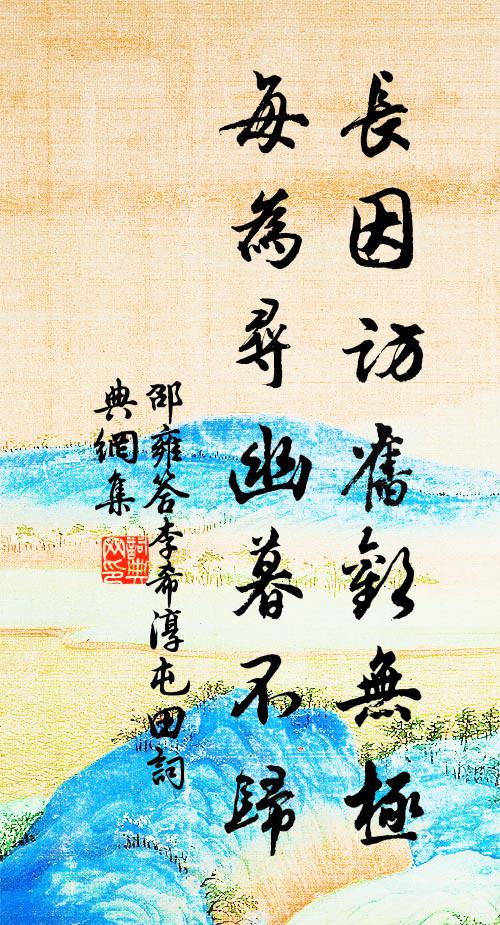 長因訪舊歡無極
每為尋幽暮不歸
邵雍答李希淳屯田詞
典網集
詞典網印